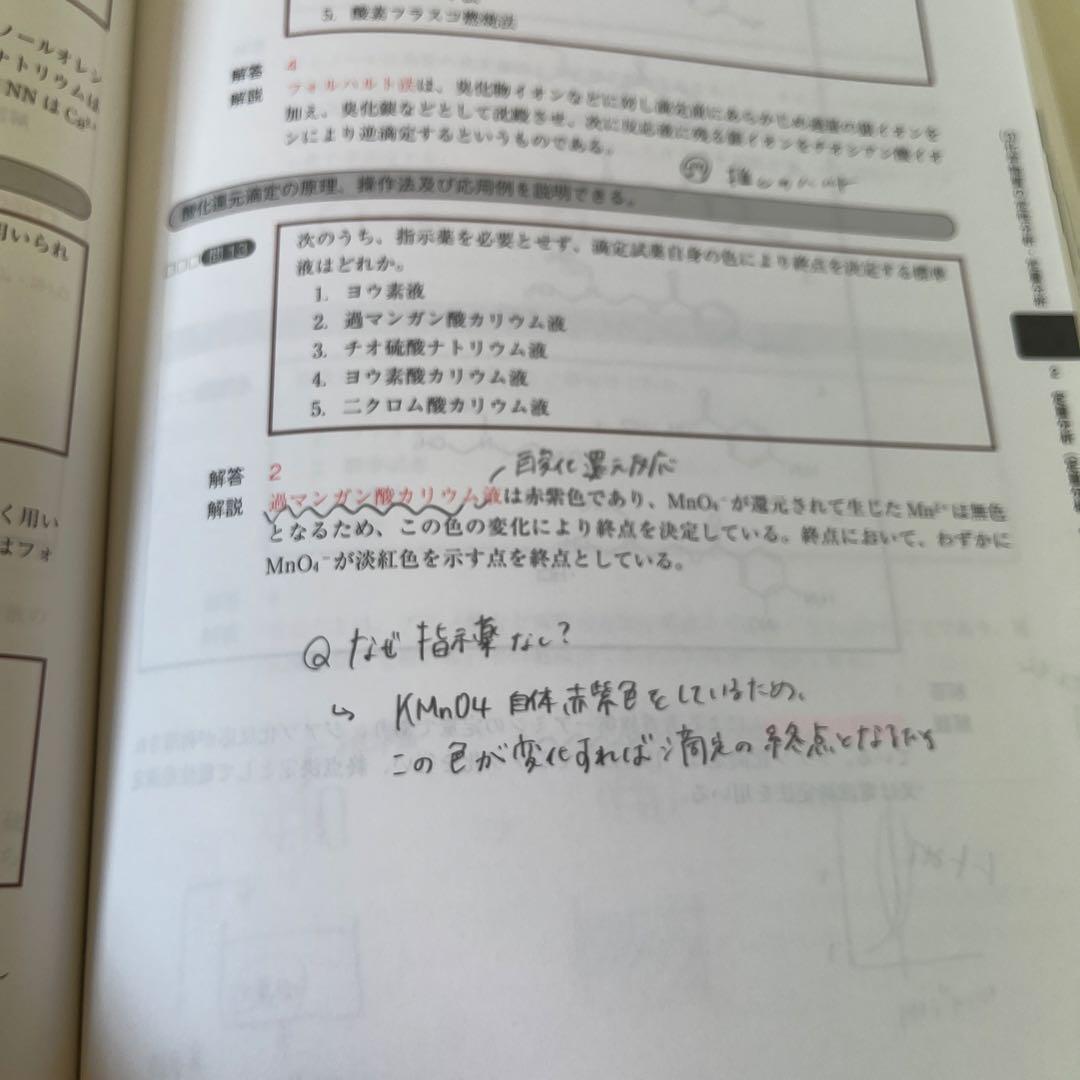 ノールオレン
ナトリウムは
NNはCa²⁺
用いられ
く用い
はフォ
5. 酸素フラスコ燃焼法
解答 4
解説 フォルハルト法は、臭化物イオンなどに対し滴定前にあらかじめ過量の銀イオンを
加え、臭化銀などとして沈殿させ、次に反応液に残る銀イオンをチオシアン酸イオ
ンにより逆滴定するというものである。
酸化還元滴定の原理、操作法及び応用例を説明できる。
□□□ 問13 次のうち、指示薬を必要とせず、滴定試薬自身の色により終点を決定する標準
液はどれか。
1. ヨウ素液
2. 過マンガン酸カリウム液
3. チオ硫酸ナトリウム液
4. ヨウ素酸カリウム液
5. 二クロム酸カリウム液
解答 2
還元反応
解説 過マンガン酸カリウム液は赤紫色であり、MnO₄⁻が還元されて生じたMn²⁺は無色
となるため、この色の変化により終点を決定している。終点において、わずかに
MnO₄⁻が淡紅色を示す点を終点としている。
Q なぜ指示薬なし?
↳ KMnO4 自体赤紫色をしているため、
この色が変化すれば滴定の終点となるから